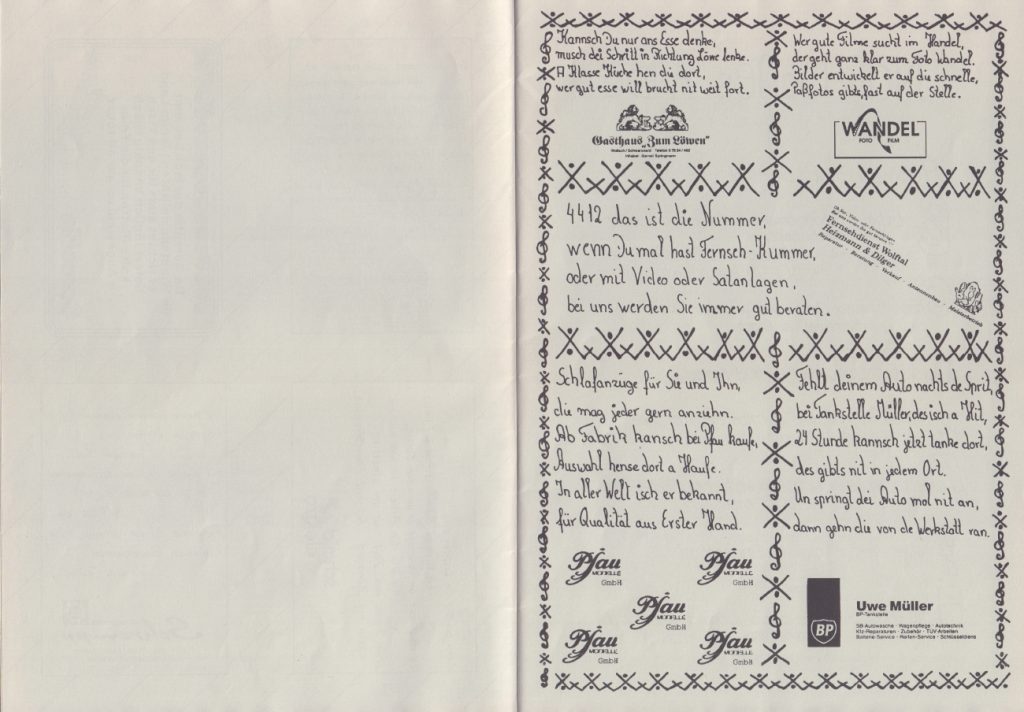 Kannsch Du nur ans Esse denke,
musch dei Schritt in Richtung Löwe lenke.
A Klasse Küche hen die dort,
wer gut esse will brucht nit weit fort.
Gasthaus „Zum Löwen"
Wer gute Filme sucht im Handel,
der geht ganz klar zum Foto Wandel.
Bilder entwickelt er auf die schnelle,
Paßfotos gibts, fast auf der Stelle.
WANDEL
FOTO FILM
4412 das ist die Nummer,
wenn Du mal hast Fernseh-Kummer,
oder mit Video oder Satanlagen,
bei uns werden Sie immer gut beraten.
Fernsehdienst Wolftal
Heizmann & Dilger
Reparatur - Beratung - Verkauf - Antennenbau - Meisterbetrieb
Schlafanzüge für Sie und Ihn,
die mag jeder gern anziehn.
Ab Fabrik kansch bei Pfau kaufe,
Auswahl hense dort a Haufe.
In aller Welt isch er bekannt,
für Qualität aus Erster Hand.
Pfau
MODELLE
GmbH
Pfau
MODELLE
GmbH
Pfau
MODELLE
GmbH
Pfau
MODELLE
GmbH
Pfau
MODELLE
GmbH
Fehlt deinem Auto nachts de Sprit,
bei Tankstelle Müller, des isch a Hit,
24 Stunde kannsch jetzt tanke dort,
des gibts nit in jedem Ort.
Un springt dei Auto mol nit an,
dann gehn die von de Werkstatt ran.
BP
Uwe Müller
BP-Tankstelle
SB-Autowäsche · Wagenpflege · Autotechnik
Kfz-Reparaturen · Zubehör · TÜV-Arbeiten
Batterie-Service · Reifen-Service · Schlüsseldienst